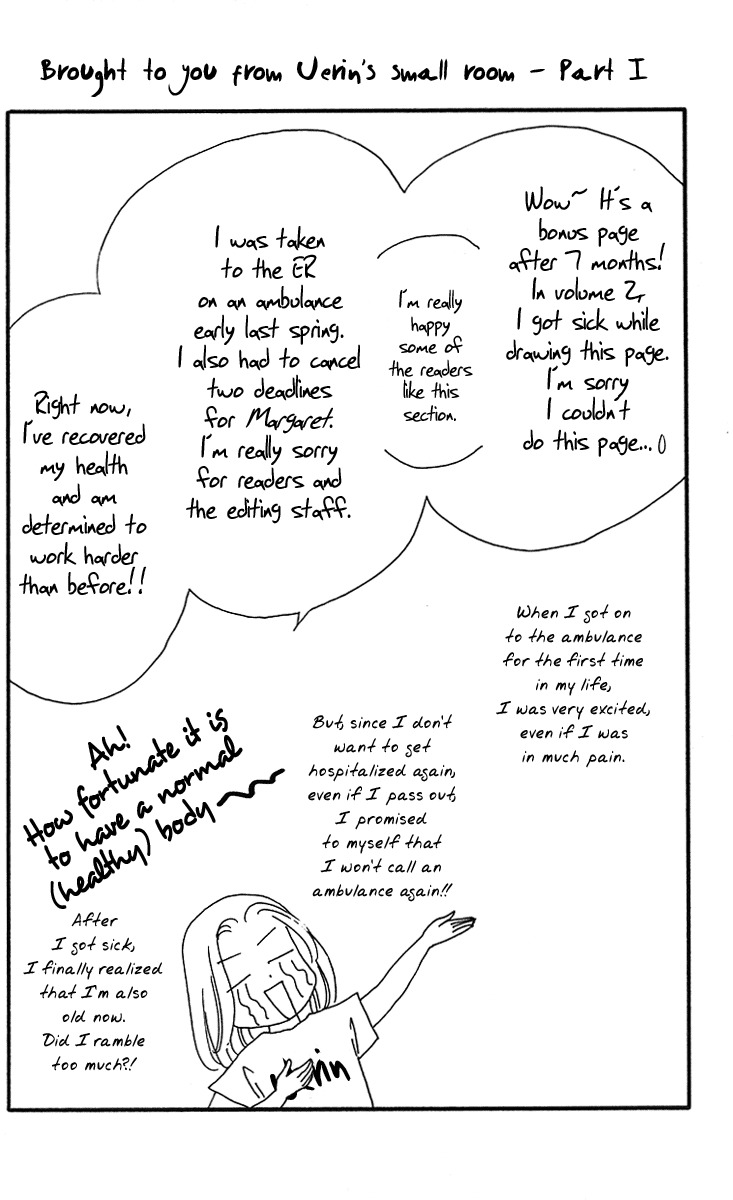 Brought to you from Uerin's small room - Part I
Wow~ It's a
bonus page
after 7 months!
In volume 2,
I got sick while
drawing this page.
I'm sorry
I couldn't
do this page...()
I'm really
happy
some of
the readers
like this
section.
I was taken
to the ER
on an ambulance
early last spring.
I also had to cancel
two deadlines
for Margaret.
I'm really sorry
for readers and
the editing staff.
Right now,
I've recovered
my health
and am
determined to
work harder
than before!!
When I got on
to the ambulance
for the first time
in my life,
I was very excited,
even if I was
in much pain.
But, since I don't
want to get
hospitalized again,
even if I pass out,
I promised
to myself that
I won't call an
ambulance again!!
Ah!
How fortunate it is
to have a normal
(healthy) body
After
I got sick,
I finally realized
that I'm also
old now.
Did I ramble
too much?!